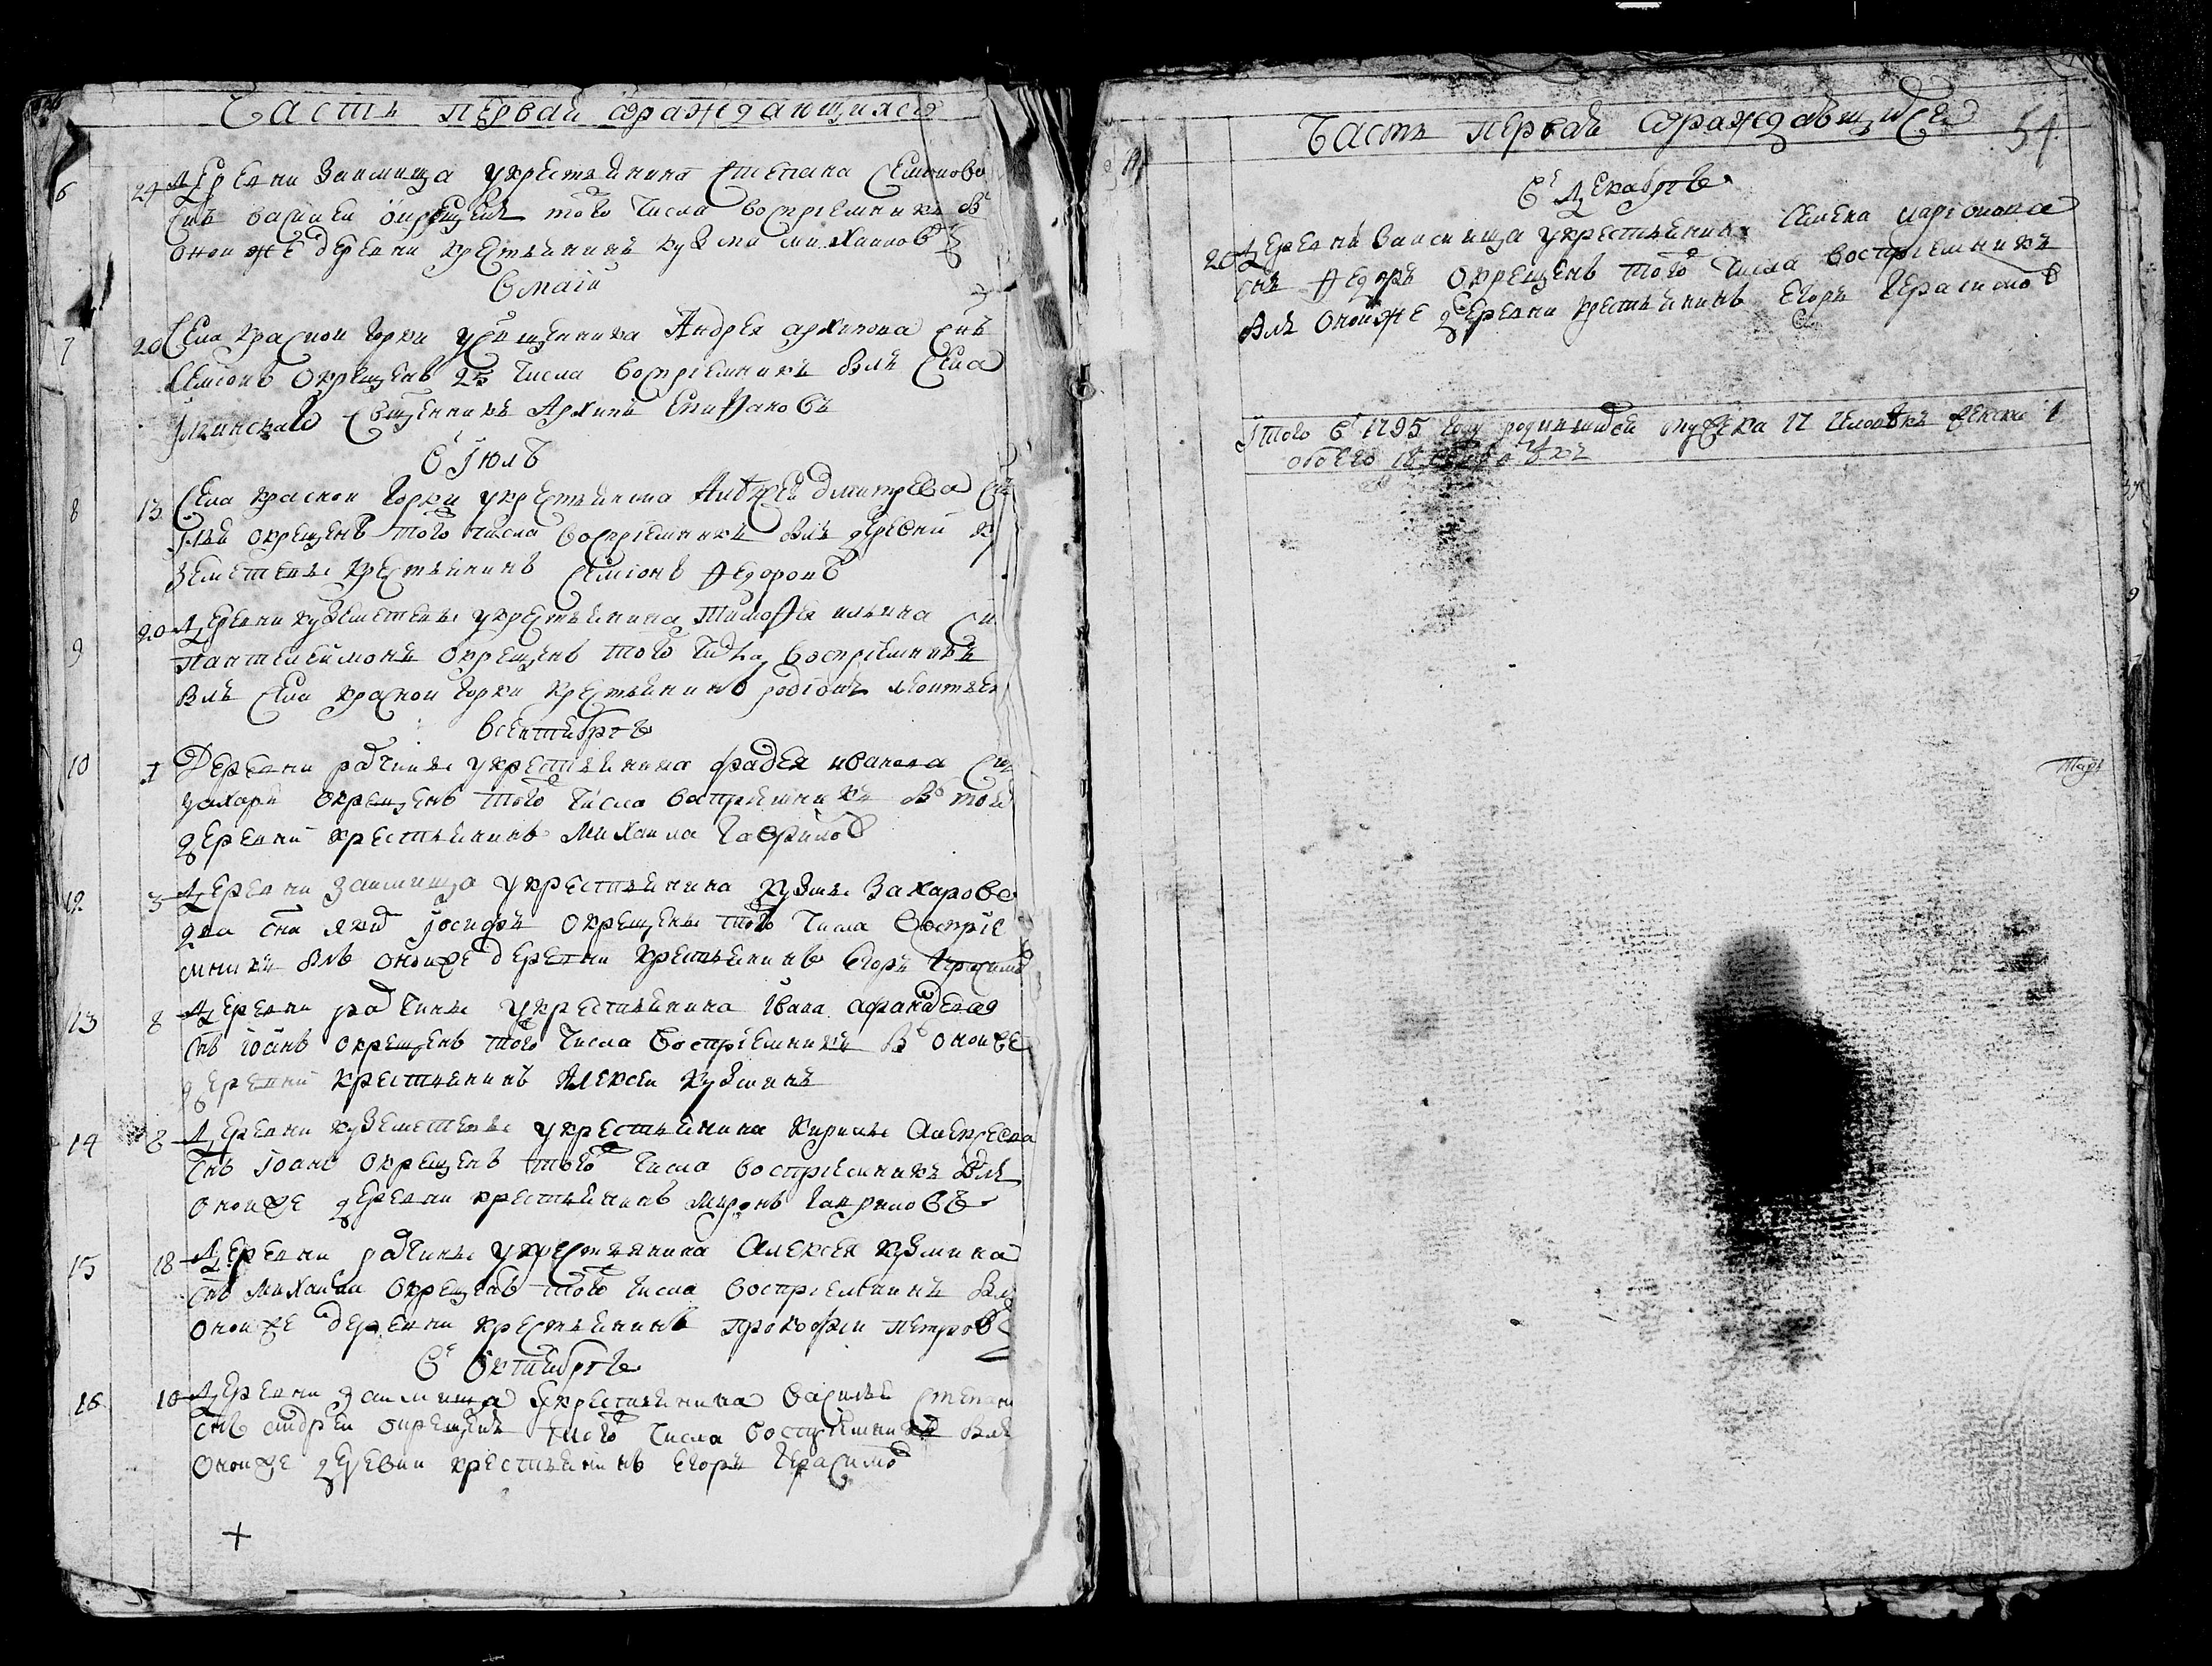 Часть первая ѡраждающихся
6 24 Деревни Заимища укрестьянина Степана Семионова
снъ василеи окрещенъ того числа восприемникъ
онои же деревни крестьянинъ кузма михаиловъ
в маїи
7 20 Села красной горки усвященника Андрея архипова снъ
Симіонъ окрещенъ 25 числа восприемникъ былъ села
священникъ Архипъ Епифановъ
в Іюлѣ
8 13 Села красной горки укрестьянина Андрея дмитрева снъ
Илья окрещенъ того числа восприемникъ былъ деревни
крестьянинъ Симіонъ Федоровъ
9 20 Деревни куземетева укрестьянина Тимофея ильина снъ
Пантелеимонъ окрещенъ того числа восприемникъ
былъ села красной горки крестьянинъ родіонъ леонтьевъ
в сентябрѣ
10 1 Деревни рабчины укрестьянина фадея иванова снъ
захаръ окрещенъ того числа восприемникъ тои
деревни крестьянинъ Михаила гаврилов
12 3 Деревни заимища укрестьянина Кузмы Захарова
два сна Іосифъ окрещены того числа восприе
мникъ былъ онои же деревни крестьянинъ Егоръ Герасимов
13 8 Деревни рабчины укрестьянина Ивана афанасева
снъ іоанъ окрещенъ того числа восприемникъ онои же
деревни крестьянинъ Алексеи Кузминъ
14 8 Деревни куземетева укрестьянина Кирилы Алексеева
снъ Іоанъ окрещенъ того числа восприемникъ былъ
онои же деревни крестьянинъ Миронъ гавриловъ
15 18 Деревни рабчины укрестьянина Алексея кузмина
снъ Михаила окрещенъ того числа восприемникъ былъ
онои же деревни крестьянинъ прокофеи петровъ
в октябрѣ
16 10 Деревни заимища укрестьянина василья степан
снъ андреи окрещенъ того числа восприемникъ былъ
онои же деревни крестьянинъ егоръ герасимов
Часть первая ѡраждающихся 54
в декабрѣ
20 Деревни заимища укрестьянина Симена ларіонова
снъ Федоръ окрещенъ того числа восприемникъ
былъ онои же деревни крестьянинъ Егоръ Герасимов
Итого в 1795 году родившихся мужеска 17 человѣкъ женска 1
обоего 18 человѣкъ